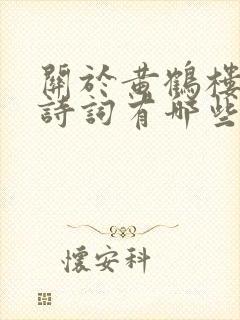 關於黄鶴樓
詩詞有哪些
懷安科